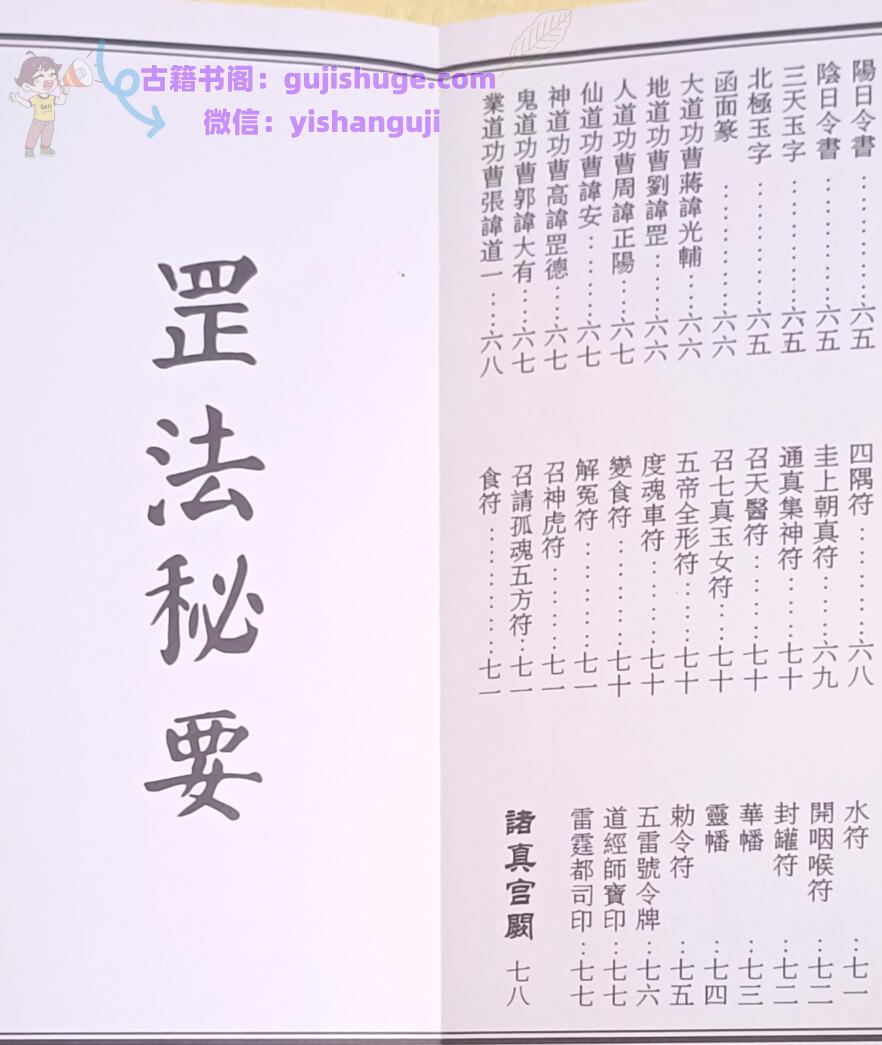 古籍书阁：gujishuge.com
微信：yishanguji
陽日令書……………六五
陰日令書……………六五
三天玉字……………六五
北極玉字……………六五
函面篆……………六六
大道功曹蔣諱光輔……六六
地道功曹劉諱罡………六六
人道功曹周諱正陽……六七
仙道功曹諱安…………六七
神道功曹高諱罡德……六七
鬼道功曹郭諱大有……六七
業道功曹張諱道一……六八
四隅符……………六八
圭上朝真符………六九
通真集神符………七十
召天醫符…………七十
召七真玉女符……七十
五帝全形符………七十
度魂車符…………七十
變食符……………七十
解冤符……………七一
召神虎符…………七一
召請孤魂五方符…七一
食符………………七一
水符…七一
開咽喉符…七二
封罐符…七二
華幡…七三
靈幡…七四
勅令符…七五
五雷號令牌…七六
道經師寶印…七七
雷霆都司印…七七
諸真宫闕 七八
罡法秘要